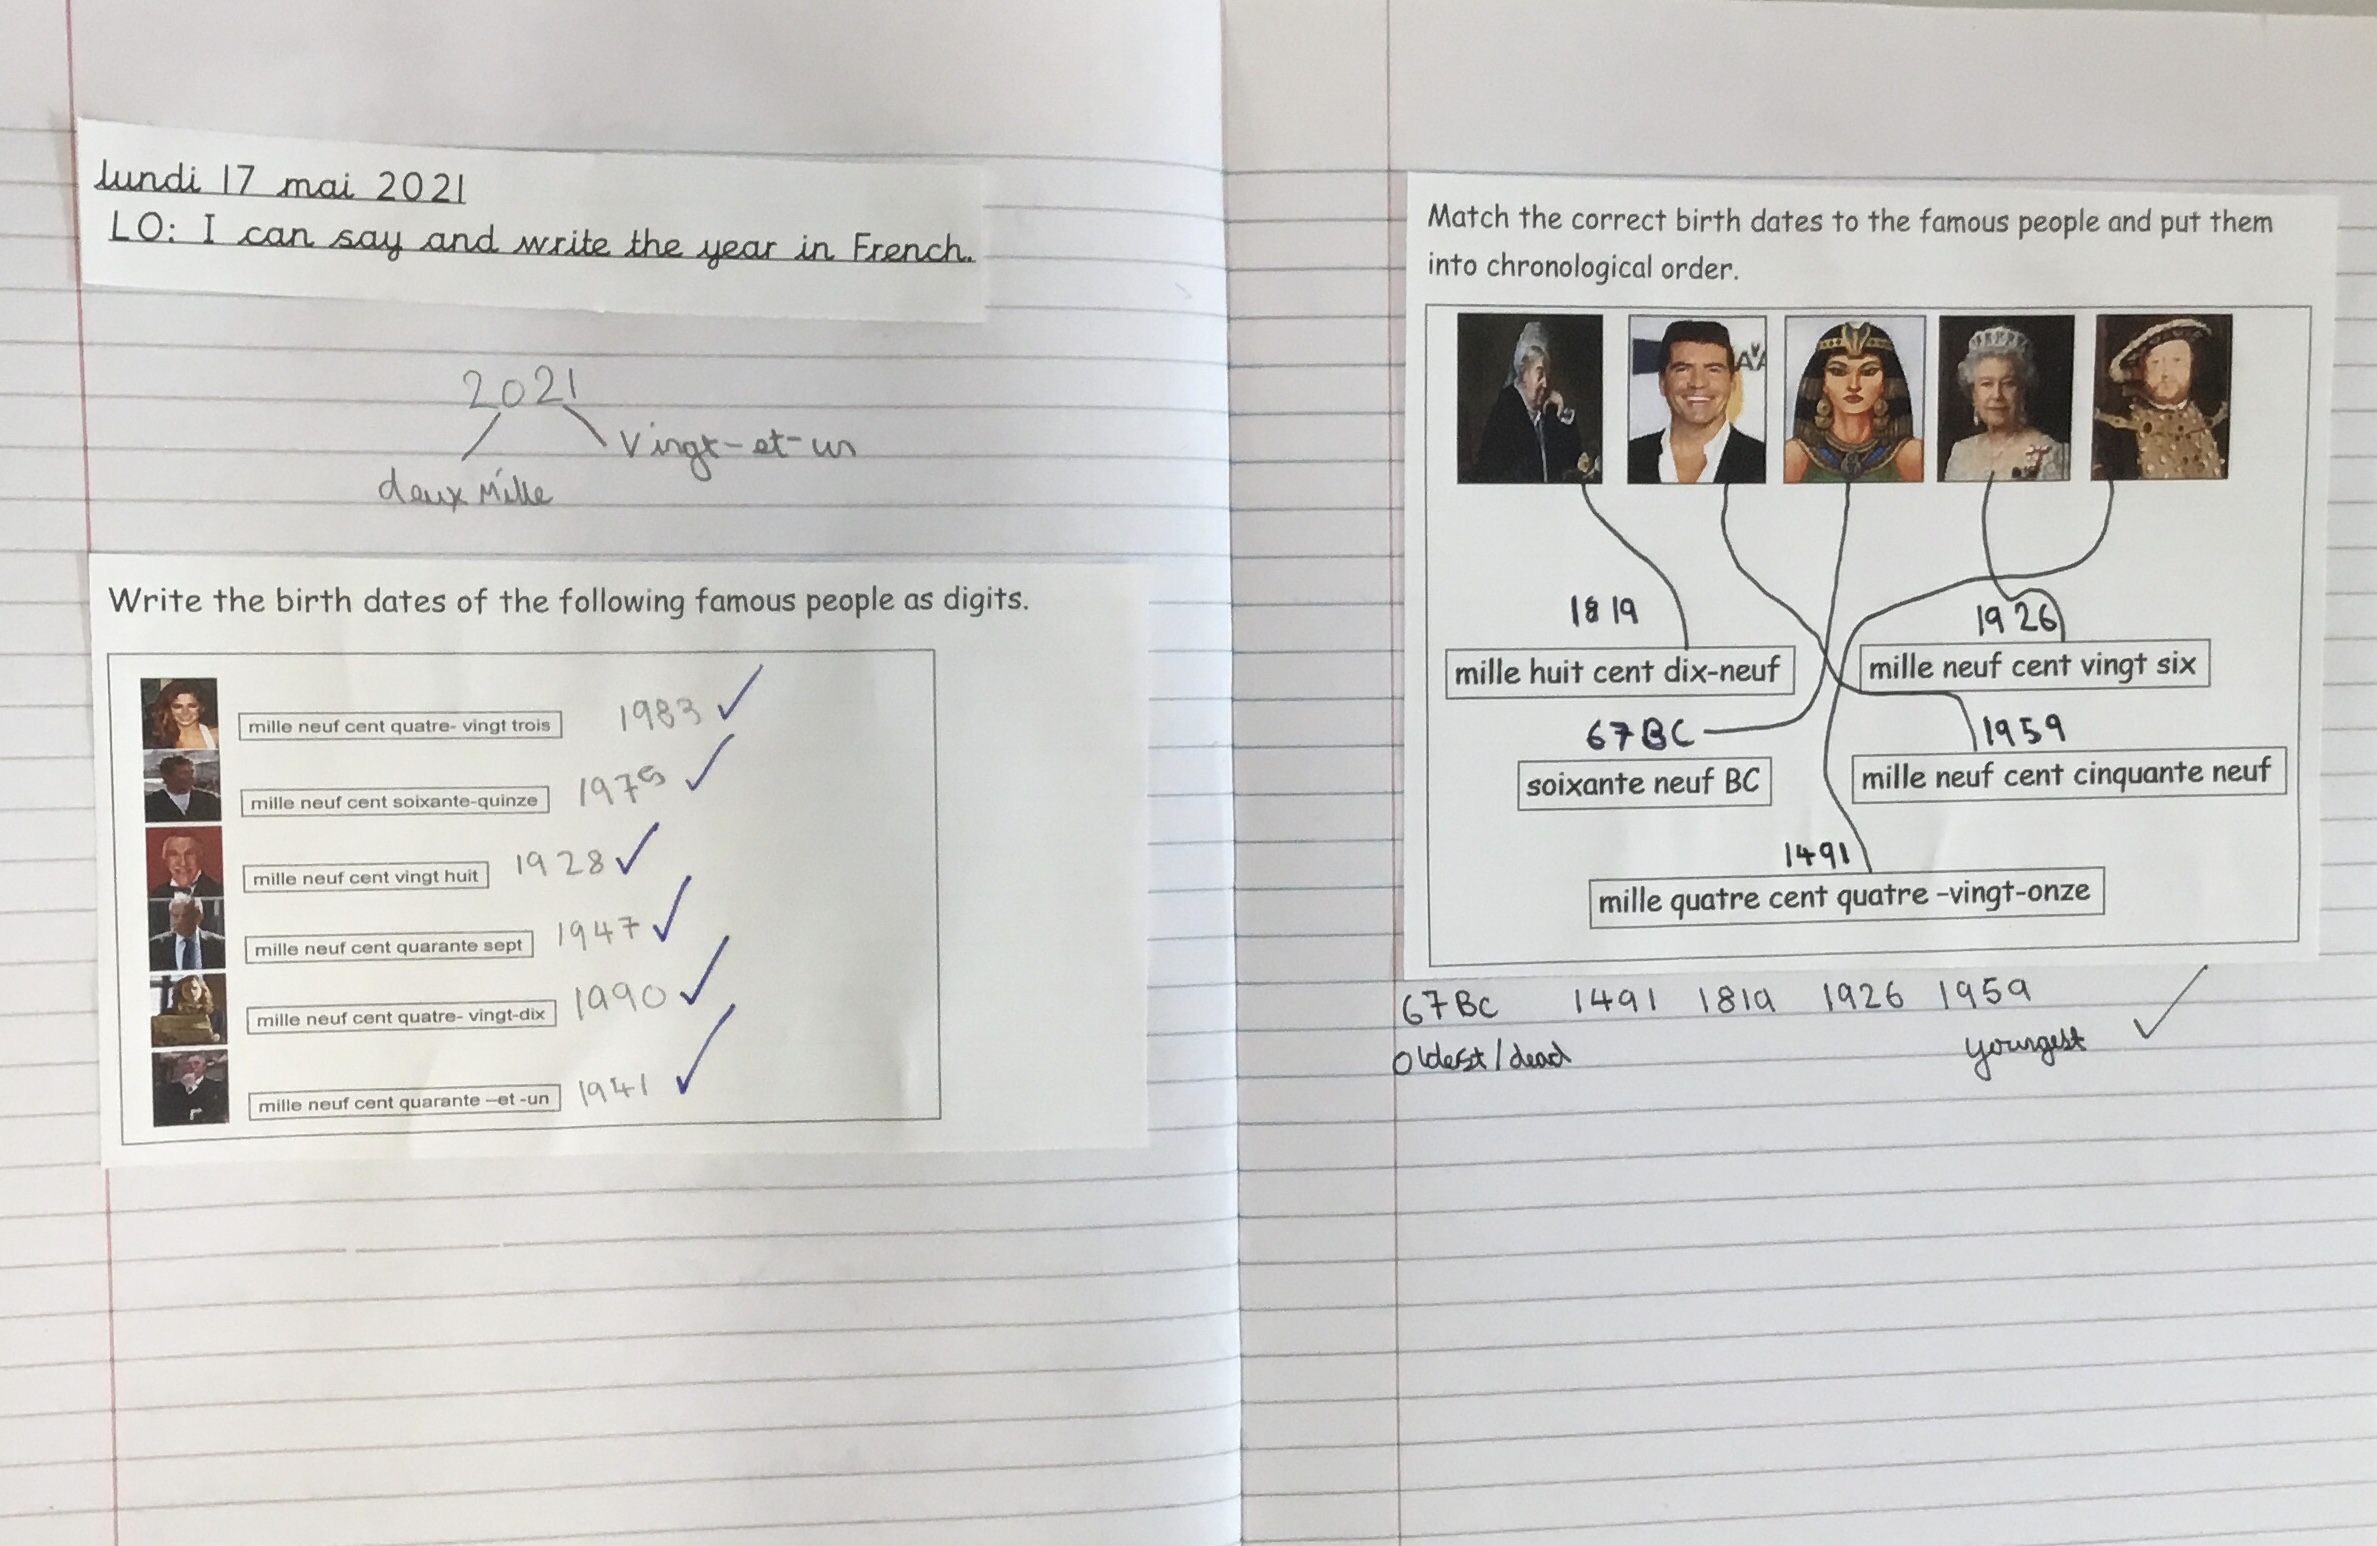 lundi 17 mai 2021
LO: I can say and write the year in French.
2021
vingt-et-un
deux mille
Write the birth dates of the following famous people as digits.
mille neuf cent quatre- vingt trois 1983
mille neuf cent soixante-quinze 1975
mille neuf cent vingt huit 1928
mille neuf cent quarante sept 1947
mille neuf cent quatre- vingt-dix 1990
mille neuf cent quarante –et -un 1941
Match the correct birth dates to the famous people and put them
into chronological order.
1819 1926
mille huit cent dix-neuf mille neuf cent vingt six
67BC 1959
soixante neuf BC mille neuf cent cinquante neuf
1491
mille quatre cent quatre –vingt-onze
67BC 1491 1819 1926 1959
oldest/dead youngest